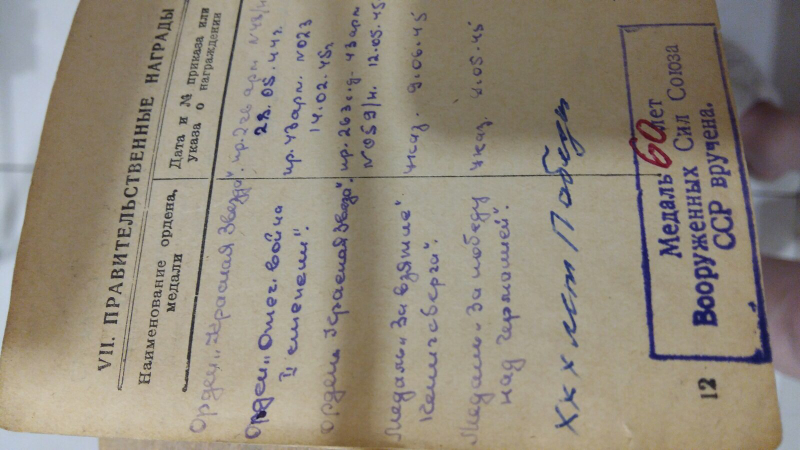 VII. ПРАВИТЕЛЬСТВЕННЫЕ НАГРАДЫ
Наименование ордена, медали
Дата и № приказа или указа о награждении
Орден „Красная Звезда“.
28.05.44г.
Орден „Отеч. война
II степени“.
пр. 43 арм. N 023
14.02.45г
Ордена Красная Звезда".
пр. 263 с.д. 43 арм
N 059/н. 12.05.45
Медаль „За взятие
Кенигсберга“.
указ. 9.06.45
Медаль „За победу
над Германией“.
указ. 9.05.45
ХХХ лет Победы
Медаль 60 лет
Вооруженных Сил Союза
ССР вручена.
12